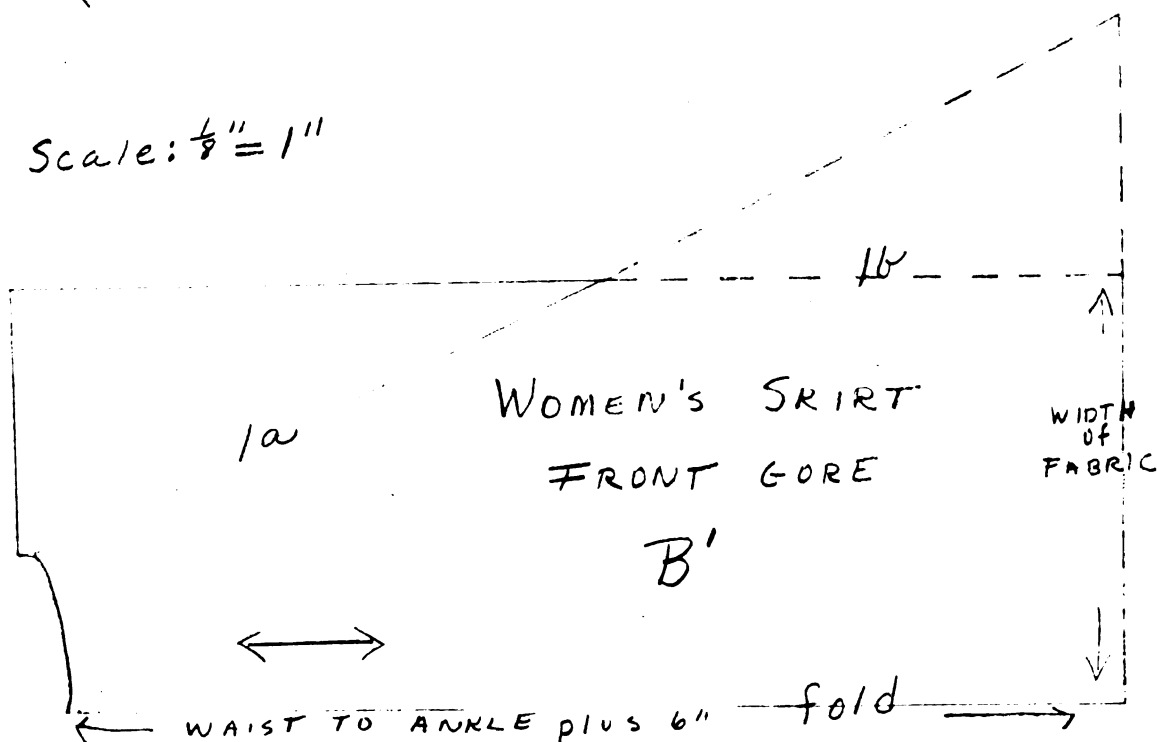 Scale: 1/8" = 1"
1b
1a
WOMEN'S SKIRT
FRONT GORE
B'
WIDTH
of
FABRIC
WAIST TO ANKLE plus 6" fold